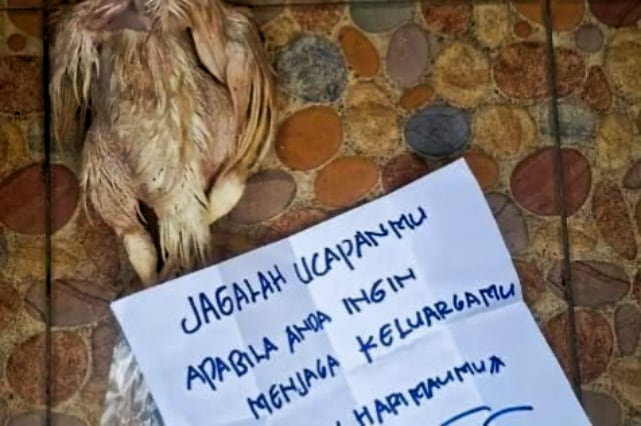 JAGALAH UCAPANMU
APABILA ANDA INGIN
MENJAGA KELUARGAMU
HARIMAUMU